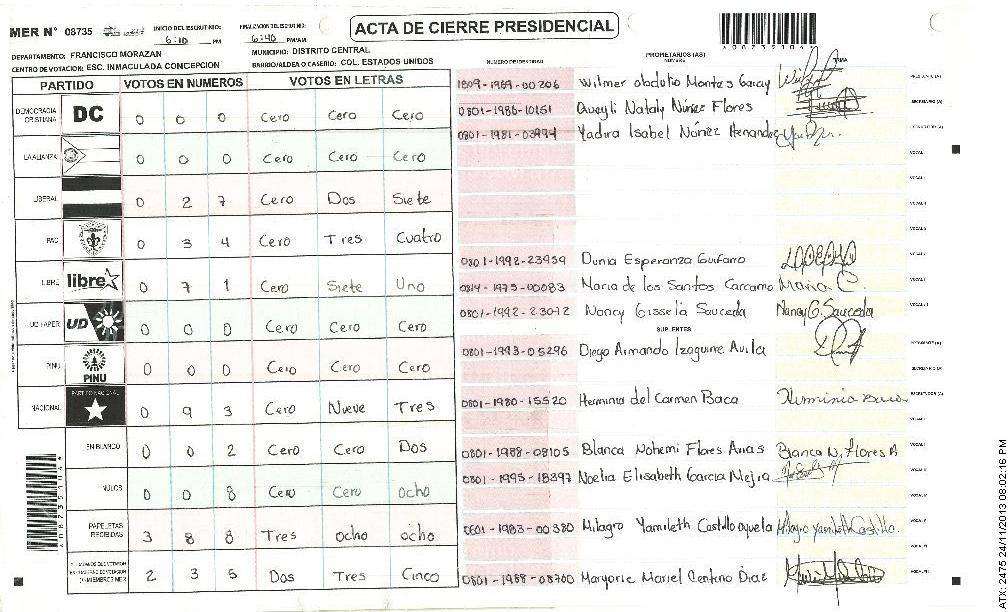 MER N° 08735
INICIO DEL ESCRUTINIO: 6:10 PM
FINALIZACION DEL ESCRUTINIO: 6:40 PM/AM
ACTA DE CIERRE PRESIDENCIAL
DEPARTAMENTO: FRANCISCO MORAZAN
MUNICIPIO: DISTRITO CENTRAL
CENTRO DE VOTACION: ESC. INMACULADA CONCEPCION
BARRIO/ALDEA O CASERIO: COL. ESTADOS UNIDOS
PARTIDO VOTOS EN NUMEROS VOTOS EN LETRAS
DEMOCRACIA CRISTIANA DC 0 0 0 Cero Cero Cero
LA ALIANZA 0 0 0 Cero Cero Cero
LIBERAL 0 2 7 Cero Dos Siete
PAC 0 3 4 Cero Tres Cuatro
LIBRE libre 0 7 1 Cero Siete Uno
UD FAPER UD 0 0 0 Cero Cero Cero
PINU PINU 0 0 0 Cero Cero Cero
NACIONAL PARTIDO NACIONAL 0 9 3 Cero Nueve Tres
EN BLANCO 0 0 2 Cero Cero Dos
NULOS 0 0 8 Cero Cero Ocho
PAPELETAS RECIBIDAS 3 8 8 Tres ocho ocho
2 3 5 Dos Tres Cinco
NUMERO DE IDENTIDAD PROPIETARIOS (AS) NOMBRE FIRMA
1809-1989-00206 Wilmer obdulio Montes Garay PRESIDENTE (A)
0801-1986-10151 Nataly Núñez Flores SECRETARIO (A)
0801-1981-03994 Yadira Isabel Núñez Hernandez ESCRUTADOR (A)
VOCAL I
VOCAL II
0801-1992-23959 Dunia Esperanza Guifarro
0814-1975-00083 Maria de los Santos Carcamo Maria C.
0801-1992-23012 Nancy Gissela Sauceda Nancy G. Sauceda
SUPLENTES
0801-1993-05296 Diego Armando Izaguirre Avila PRESIDENTE (A)
SECRETARIO (A)
0801-1980-15520 Herminia del Carmen Baca Herminia Baca ESCRUTADOR (A)
0801-1988-08105 Blanca Nohemi Flores Arias Blanca N. Flores A
0801-1995-18397 Noelia Elisabeth Garcia Mejia
0801-1983-00380 Milagro Yamileth Castillo Milagro Yamileth Castillo
0801-1988-08700 Marjorie Mariel Centeno Diaz
ATX: 2475 24/11/2013 08:02:16 PM